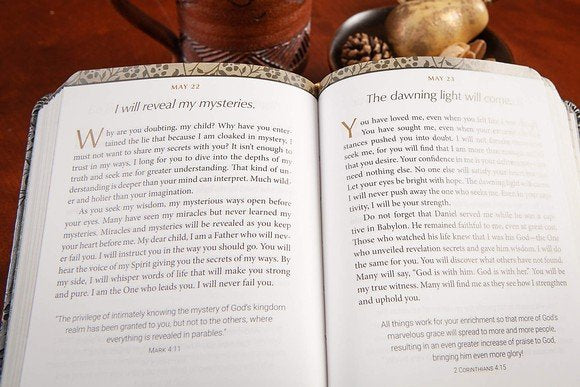 MAY 22
I will reveal my mysteries.
Why are you doubting, my child? Why have you enter-
tained the lie that because I am cloaked in mystery, I
must not want to share my secrets with you? It isn't enough to
trust in my ways, I long for you to dive into the depths of my
truth and seek me for greater understanding. That kind of un-
derstanding is deeper than your mind can interpret. Much wild-
er and holier than your imagination.
As you seek my wisdom, my mysterious ways open before
your eyes. Many have seen my miracles but never learned my
mysteries. Miracles and mysteries will be revealed as you keep
your heart before me. My dear child, I am a Father who will nev-
er fail you. I will instruct you in the way you should go. You will
hear the voice of my Spirit giving you the secrets of my ways. By
my side, I will whisper words of life that will make you strong
and pure. I am the One who leads you. I will never fail you.
"The privilege of intimately knowing the mystery of God's kingdom
realm has been granted to you, but not to the others, where
everything is revealed in parables."
MARK 4:11
MAY 23
The dawning light will come.
You have loved me, even when you felt
You have sought me, even when your
stances pushed you into doubt. I will not
seek me, for you will find that I am more than enough
that you desire. Your confidence in me is your
need nothing else. No one else will satisfy your
Let your eyes be bright with hope. The dawning light will
I will never push away the one who seeks me. Even in your cap-
tivity, I will be your strength.
Do not forget that Daniel served me while he was a cap-
tive in Babylon. He remained faithful to me, even at great cost.
Those who watched his life knew that I was his God—the One
who unveiled revelation secrets and gave him wisdom. I will do
the same for you. You will discover what others have not found.
Many will say, "God is with him. God is with her." You will be
my true witness. Many will find me as they see how I strengthen
and uphold you.
All things work for your enrichment so that more of God's
marvelous grace will spread to more and more people,
resulting in an even greater increase of praise to God,
bringing him even more glory!
2 CORINTHIANS 4:15